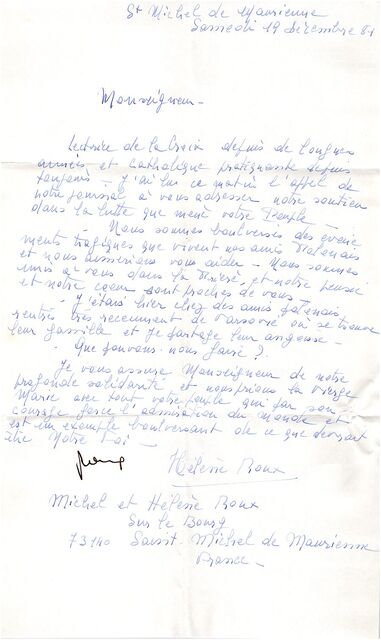 St Michel de Maurienne
Samedi 19 décembre 81
Monseigneur -
Lectrice de la Croix depuis de longues
années et catholique pratiquante depuis
toujours - J'ai lu ce matin l'appel de
notre journal à vous adresser notre soutien
dans la lutte que mène votre Peuple -
- Nous sommes bouleversés des évène
ments tragiques que vivent nos amis Polonais
et nous aimerions vous aider - Nous sommes
unis à vous dans la Prière, et notre pensée
et notre cœur sont proches de vous -
- J'étais hier chez des amis polonais
rentrés très récemment de Varsovie où se trouve
leur famille et je partage leur angoisse -
- Que pouvons-nous faire ?
Je vous assure Monseigneur de notre
profonde solidarité et nous prions la Vierge
Marie avec tout votre peuple qui par son
courage force l'admiration du Monde et
est un exemple bouleversant de ce que devrait
être Notre Foi -
Hélène Roux
Michel et Hélène Roux
Sur le Bourg
73140 Saint Michel de Maurienne
France -